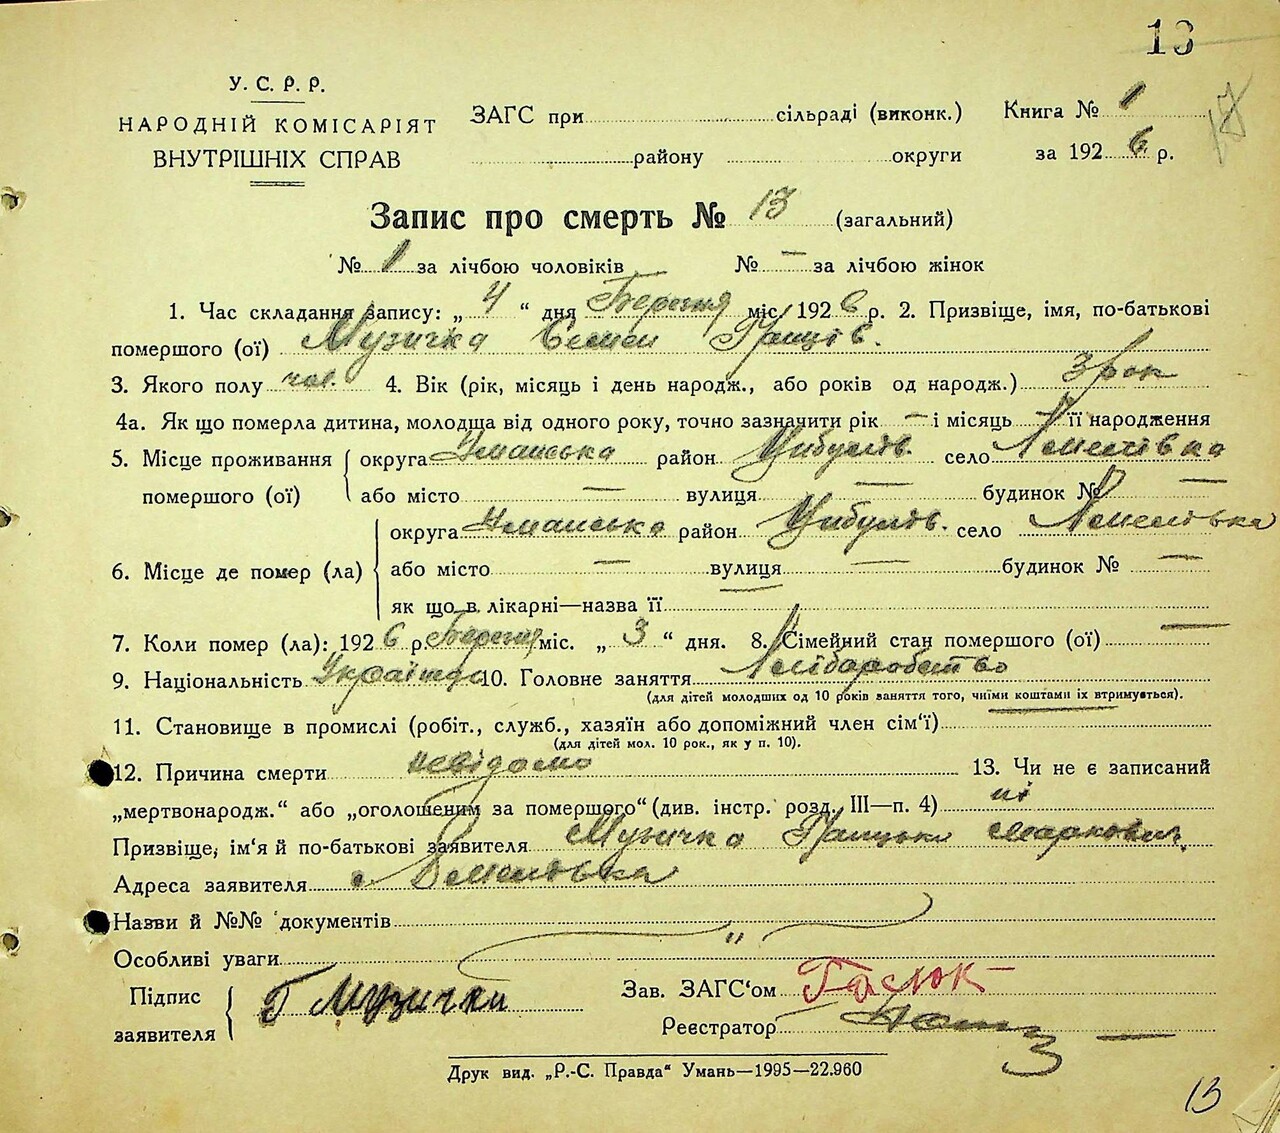 13
17
У. С. Р. Р.
НАРОДНІЙ КОМІСАРІЯТ
ВНУТРІШНІХ СПРАВ
ЗАГС при сільраді (виконк.)
району округи
Книга № 1
за 1926 р.
Запис про смерть № 13 (загальний)
№ 1 за лічбою чоловіків № — за лічбою жінок
1. Час складання запису: „ 4 “ дня Березня міс. 1926 р. 2. Призвіще, імя, по-батькові
помершого (ої) Музичка Семен
3. Якого полу чол. 4. Вік (рік, місяць і день народж., або років од народж.) 3 рок
4а. Як що померла дитина, молодща від одного року, точно зазначити рік — і місяць її народження
5. Місце проживання помершого (ої)
округа Уманська район Цибулів. село
або місто — вулиця — будинок № —
6. Місце де помер (ла)
округа Уманська район Цибулів. село
або місто — вулиця — будинок № —
як що в лікарні—назва її
7. Коли помер (ла): 1926 р. Березня міс. „ 3 “ дня. 8. Сімейний стан помершого (ої) —
9. Національність 10. Головне заняття Хліборобство
(для дітей молодших од 10 років заняття того, чиїми коштами їх втримується).
11. Становище в промислі (робіт., служб., хазяїн або допоміжний член сім'ї)
(для дітей мол. 10 рок., як у п. 10).
12. Причина смерти невідомо 13. Чи не є записаний
„мертвонародж.“ або „оголошеним за помершого“ (див. інстр. розд. III—п. 4) ні
Призвіще, ім'я й по-батькові заявителя Музичка Маркович.
Адреса заявителя с
Назви й №№ документів
Особливі уваги
Підпис заявителя Г Музичка
Зав. ЗАГС'ом
Реєстратор
Друк вид. „Р.-С. Правда“ Умань—1995—22.960
13